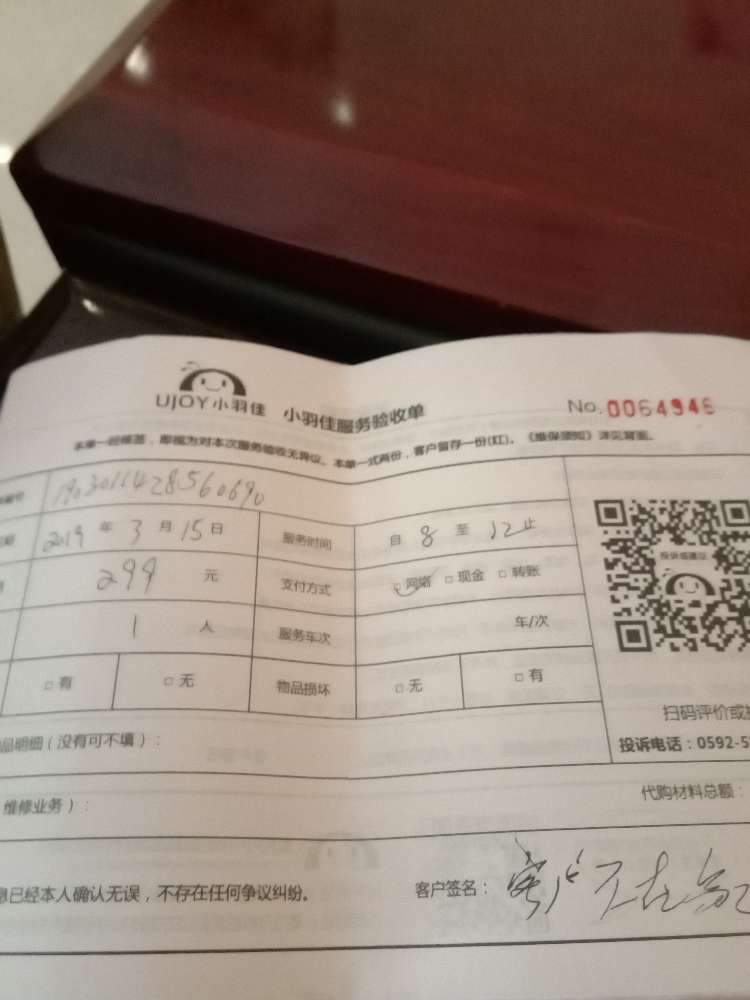 UJOY小羽佳 小羽佳服务验收单 No. 0064946
本单一经签签，即视为对本次服务验收无异议。本单一式两份，客户留存一份(红)。《维保须知》详见背面。
编号
2019 年 3 月 15 日 服务时间 自 8 至 12 止
299 元 支付方式 □ 网络 □ 现金 □ 转账
投诉或建议
1 人 服务车次 车/次
□ 有 □ 无 物品损坏 □ 无 □ 有
扫码评价或
品明细（没有可不填）：
投诉电话：0592-5
维修业务）：
代购材料总额：
息已经本人确认无误，不存在任何争议纠纷。 客户签名： 客户不在